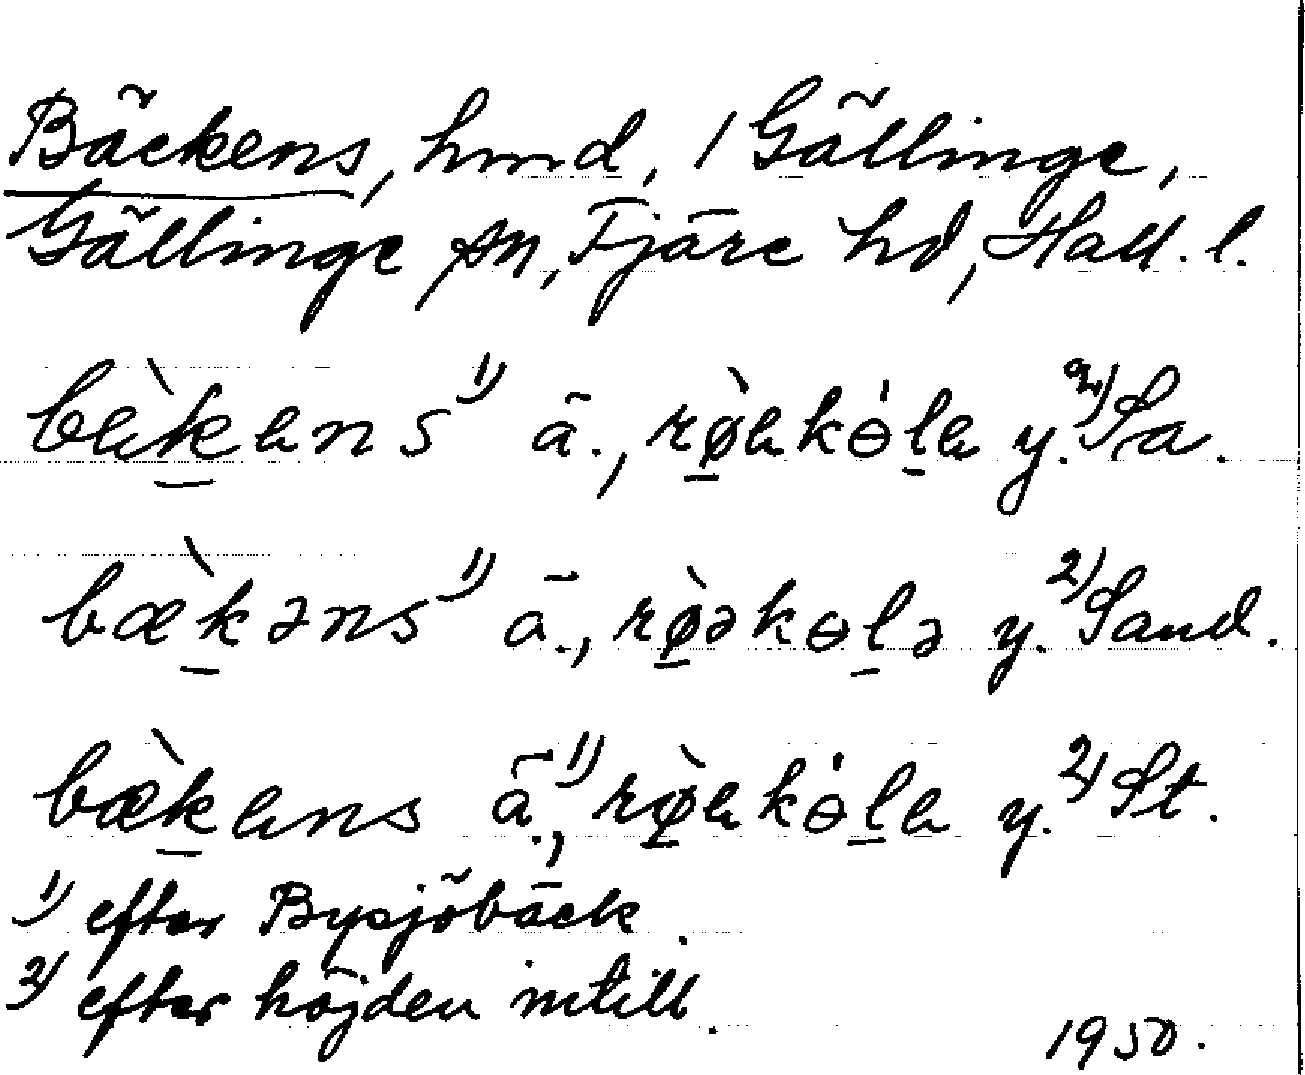 Bäckens, hmd, 1 Gällinge,
Gällinge sn, Fjäre hd, Hall. l.
bæ̀kens ¹⁾ ä., rø̀ekɵ́le y. ²⁾ Sa.
bæ̀kəns ¹⁾ ä., rø̀əkɵlə y. ²⁾ Sand.
bæ̀kens ä. ¹⁾, rø̀ekɵ́le y. ²⁾ St.
¹⁾ efter Bysjöbäck.
²⁾ efter höjden intill.
1950.